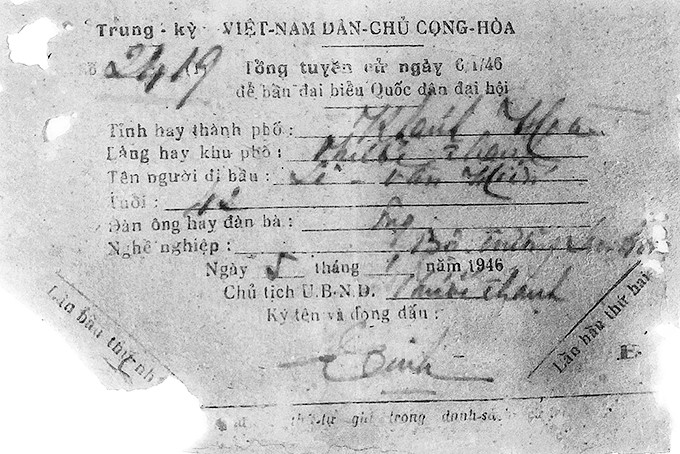 Trung-kỳ VIỆT-NAM DÂN-CHỦ CỘNG-HÒA
Số 2419 (1) Tổng tuyển cử ngày 6/1/46
để bầu đại biểu Quốc dân đại hội
Tỉnh hay thành phố: Khánh Hòa
Làng hay khu phố: Phước Thạnh
Tên người đi bầu: Lê-Văn Hiến
Tuổi: 42
Đàn ông hay đàn bà: Ông
Nghề nghiệp: Bộ
Ngày 5 tháng 1 năm 1946
Chủ tịch U.B.N.D. Phước Thạnh
Ký tên và đóng dấu:
Lần bầu thứ nh
Lần bầu thứ hai
B
Đinh
thứ-tự ghi trong danh-sá